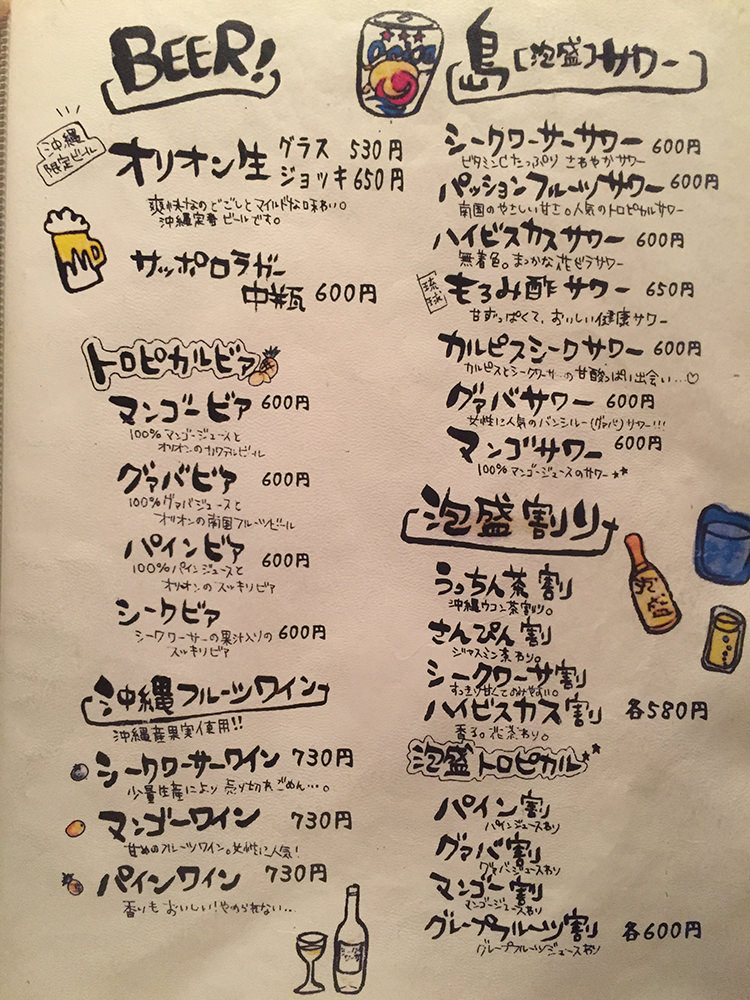 BEER!
沖縄
限定ビール
オリオン生 グラス 530円
ジョッキ 650円
爽快なのどごしとマイルドな味わい。
沖縄定番ビールです。
サッポロラガー
中瓶 600円
トロピカルビア
マンゴービア 600円
100%マンゴージュースと
オリオンのカクテルビール
グァバビア 600円
100%グァバジュースと
オリオンの南国フルーツビール
パインビア 600円
100%パインジュースと
オリオンのスッキリビア
シークビア 600円
シークワーサーの果汁入りの
スッキリビア
沖縄フルーツワイン
沖縄産果実使用!!
シークワーサーワイン 730円
少量生産により売り切れごめん…。
マンゴーワイン 730円
甘めのフルーツワイン。女性に人気!
パインワイン 730円
香りもおいしい!やめられない…
島[泡盛]サワー
シークワーサーサワー 600円
ビタミンCたっぷり さわやかサワー
パッションフルーツサワー 600円
南国のやさしい甘さ。人気のトロピカルサワー
ハイビスカスサワー 600円
無着色。まっかな花びらサワー
琉球
もろみ酢サワー 650円
甘ずっぱくて、おいしい健康サワー
カルピスシークサワー 600円
カルピスとシークワーサーの甘酸っぱい出会い…♡
グァバサワー 600円
女性に人気のバンシルー(グァバ)サワー!!!
マンゴサワー 600円
100%マンゴージュースのサワー★★
泡盛割り
うっちん茶割
沖縄ウコン茶割り。
さんぴん割
ジャスミン茶わり。
シークワーサ割
すっきり甘くてのみやすい。
ハイビスカス割 各580円
香る。花茶わり。
泡盛トロピカル
パイン割
パインジュースわり
グァバ割
グァバジュースわり
マンゴー割
マンゴージュースわり
グレープフルーツ割 各600円
グレープフルーツジュースわり
泡盛